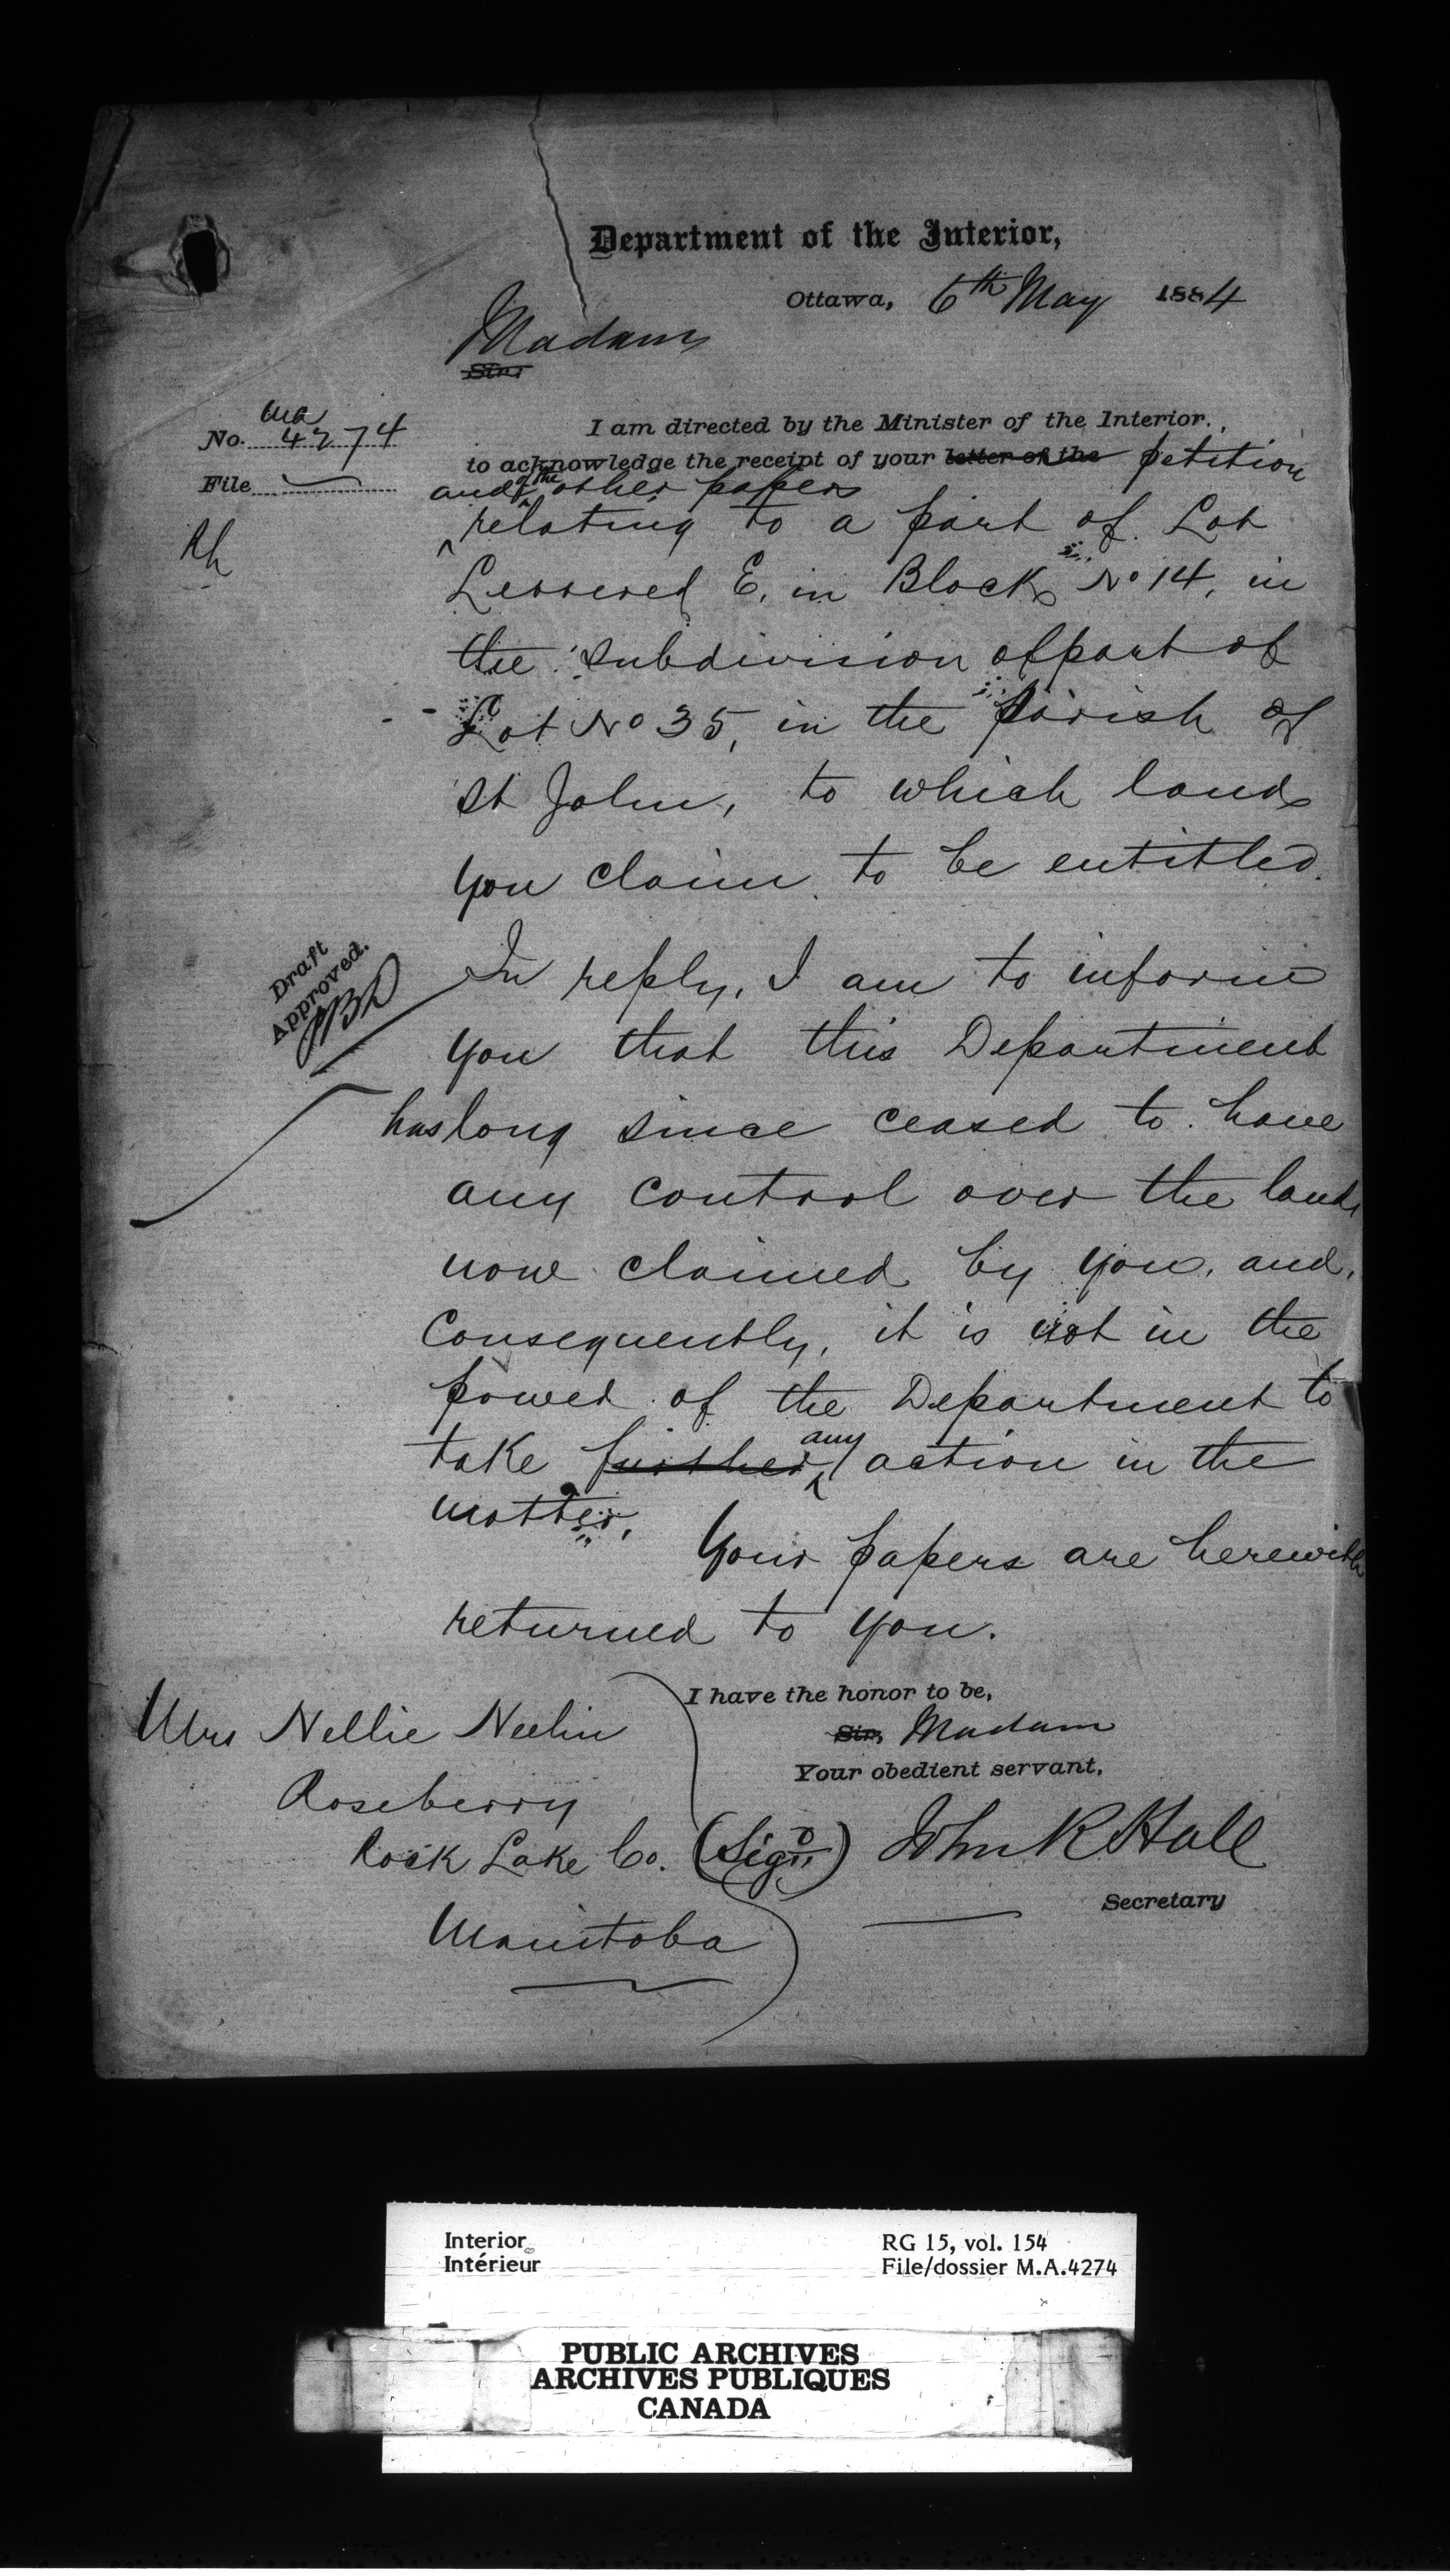 Department of the Interior,
Ottawa, 6th May 1884
Madam
Sir,
MA
No. 4274
File
I am directed by the Minister of the Interior,
to acknowledge the receipt of your letter of the petition
and of the other papers
relating to a part of Lot
Lettered E, in Block No 14, in
the subdivision of part of
Lot No 35, in the Parish of
St John, to which land
you claim to be entitled.
Draft
Approved.
In reply, I am to inform
you that this Department
has long since ceased to have
any control over the land
now claimed by you, and,
consequently, it is not in the
power of the Department to
take further any action in the
matter.
Your papers are herewith
returned to you.
I have the honor to be,
Sir, Madam
Your obedient servant,
Mrs Nellie Neelin
Roseberry
Rock Lake Co.
Manitoba
(Sigd) John R Hall
Secretary
Interior
Intérieur
RG 15, vol. 154
File/dossier M.A.4274
PUBLIC ARCHIVES
ARCHIVES PUBLIQUES
CANADA